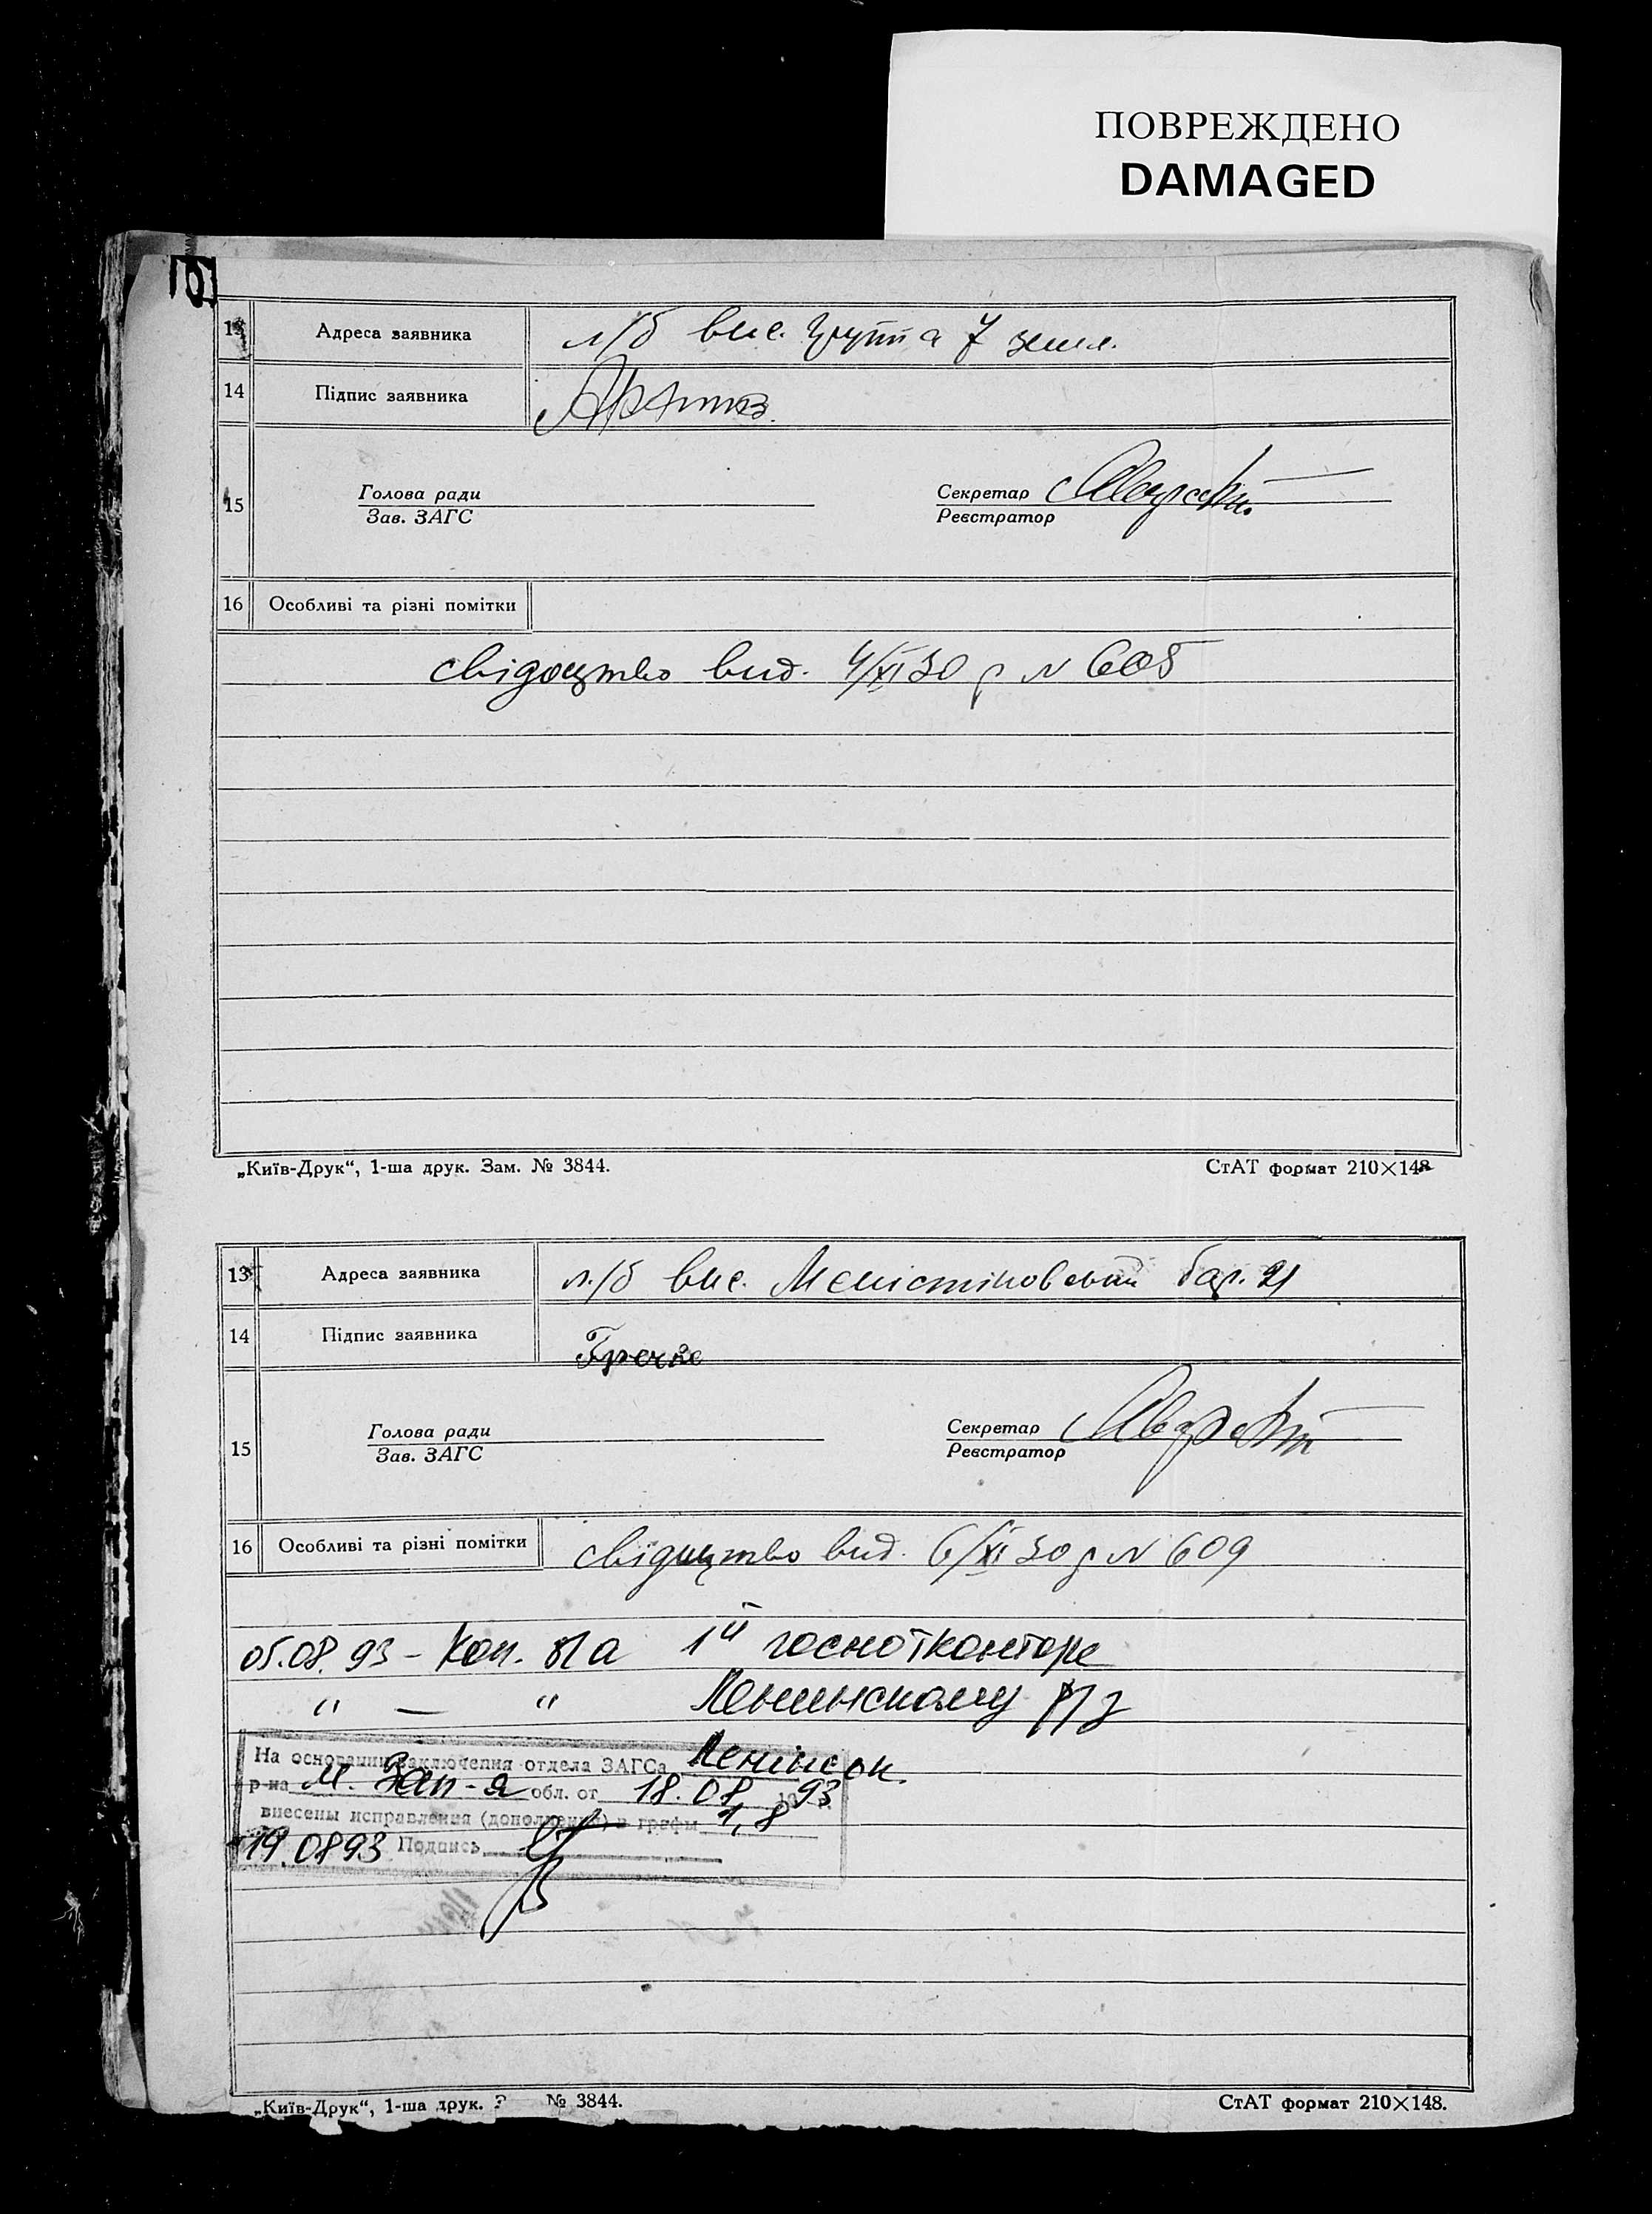 ПОВРЕЖДЕНО
DAMAGED
13 Адреса заявника л/б вис. група 7 земл.
14 Підпис заявника
15 Голова ради Секретар
Зав. ЗАГС Реєстратор
16 Особливі та різні помітки
свідоцтво вид. 4/XI 30 р N 605
„Київ-Друк“, 1-ша друк. Зам. № 3844. СтАТ формат 210×148
13 Адреса заявника л/б вис. бар. 21
14 Підпис заявника Гречке
15 Голова ради Секретар
Зав. ЗАГС Реєстратор
16 Особливі та різні помітки свідоцтво вид. 6/XI 30 р N 609
05.08.93 – Коп. 1й госнотконторе
" — " Ленинскому
На основании заключения отдела ЗАГСа Ленінськ.
р-на м. Зап-я обл. от 18.08.1993
внесены исправления (дополнения) в графы 1,8
19.0893 Подпись
„Київ-Друк“, 1-ша друк. З № 3844. СтАТ формат 210×148.